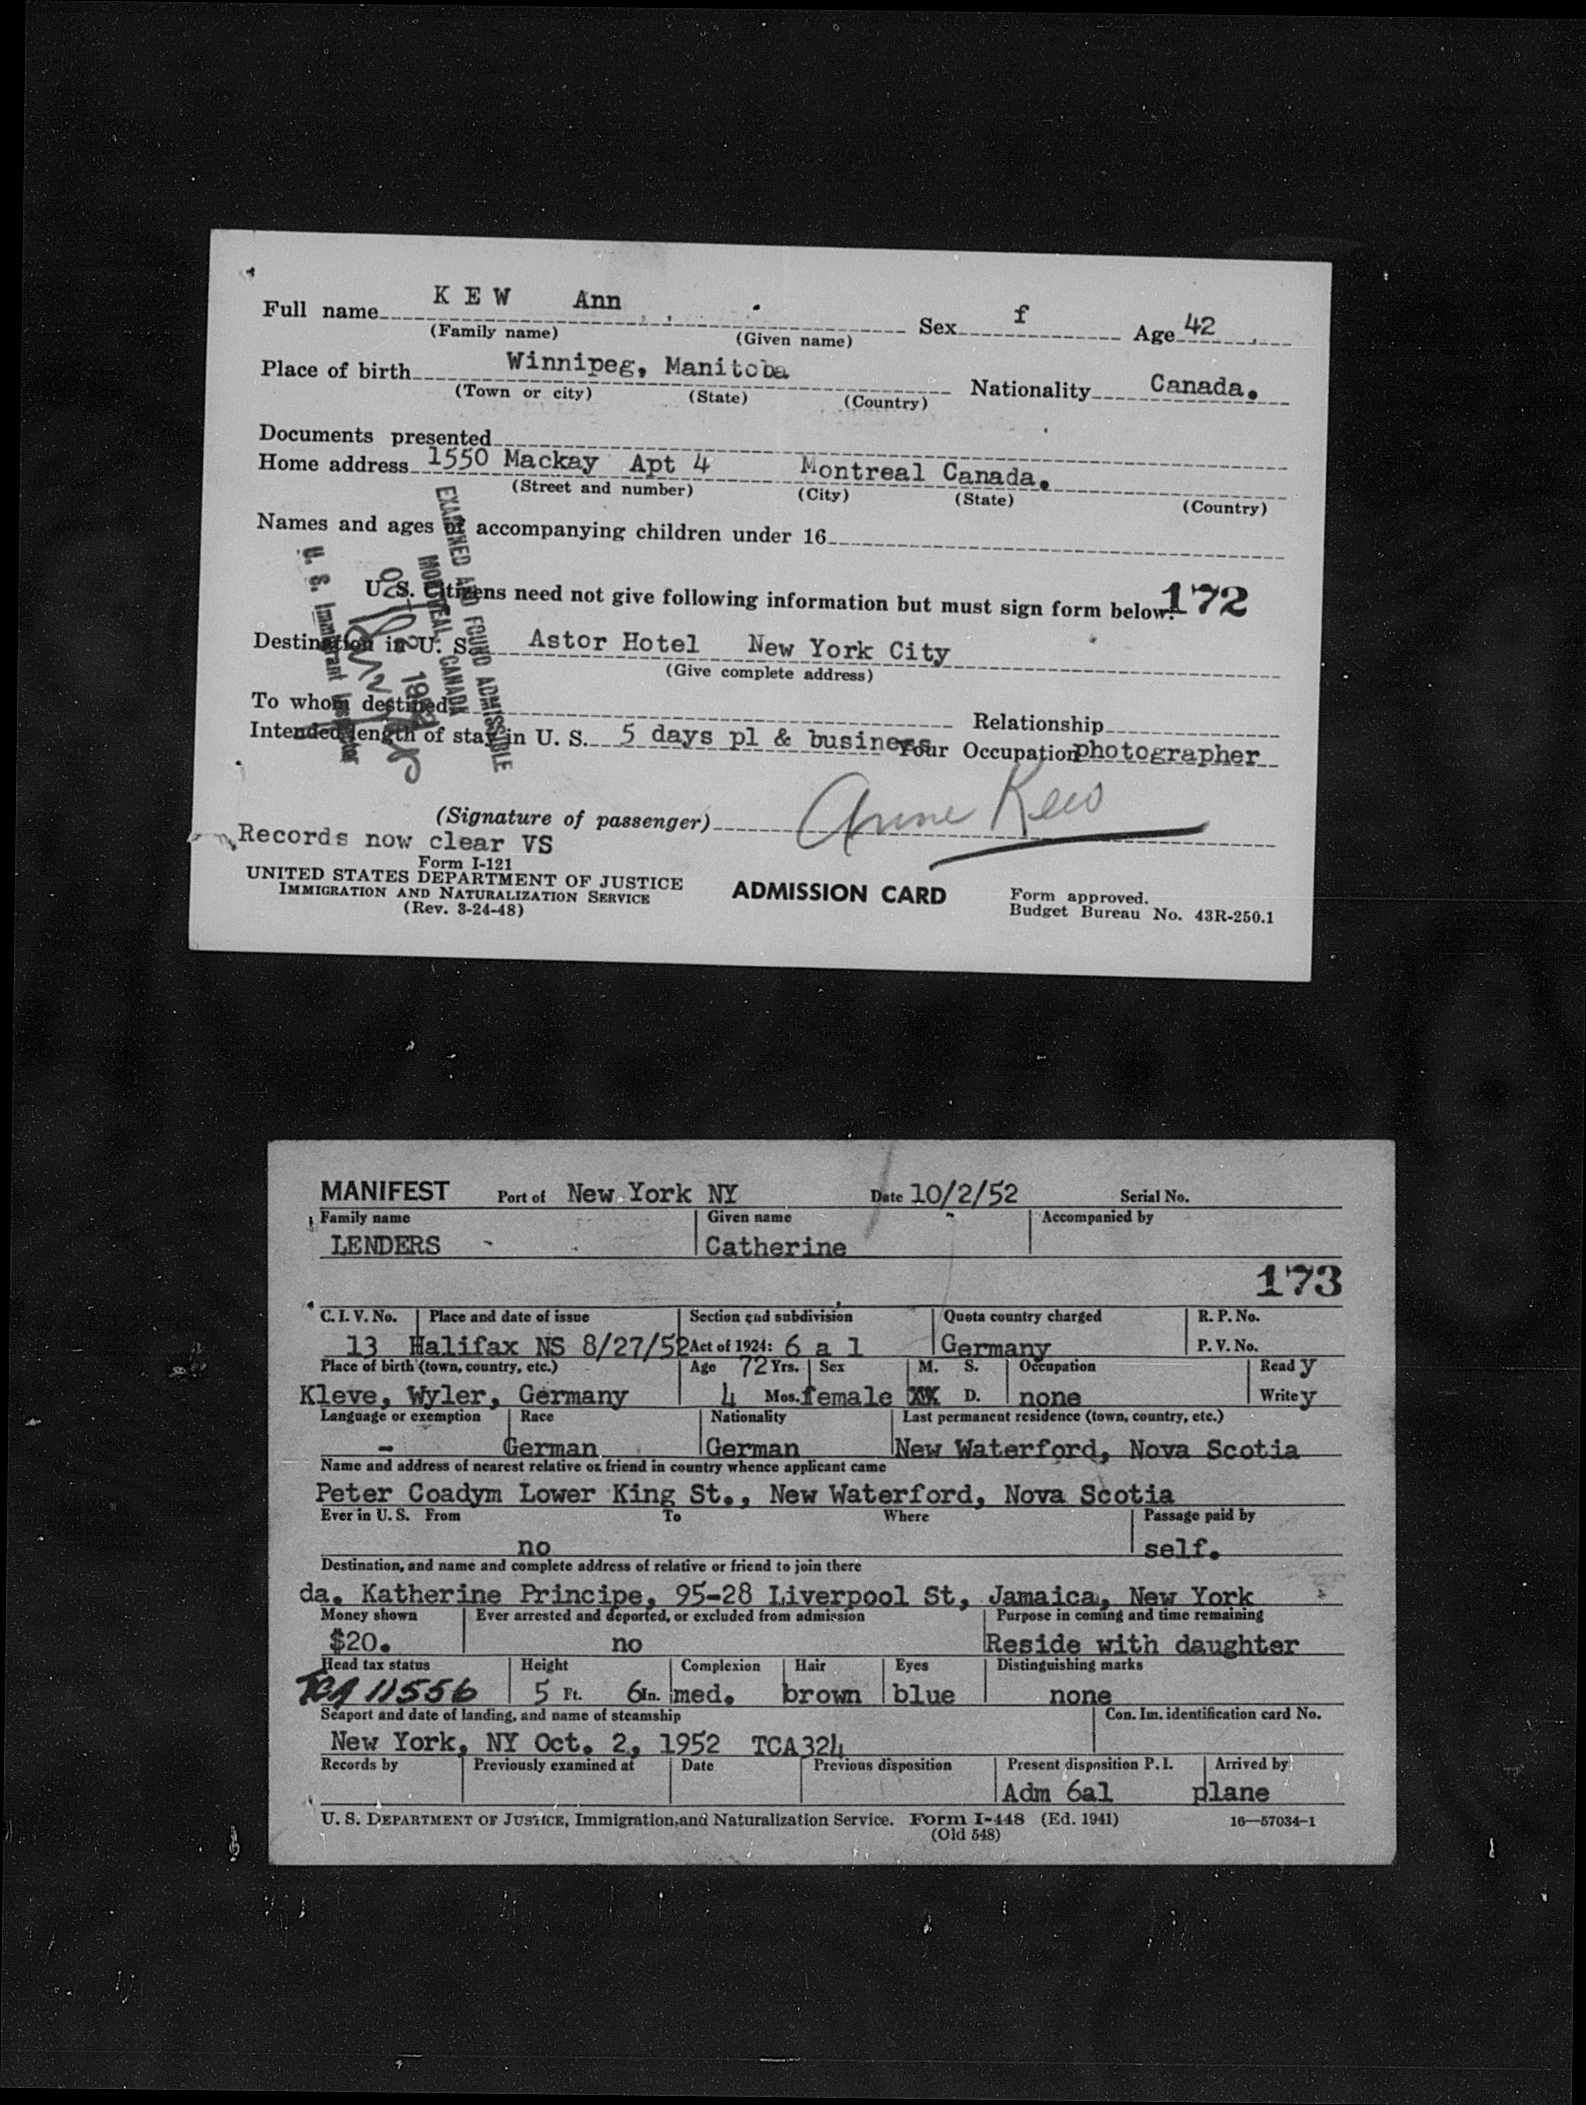 Full name K E W Ann Sex f Age 42
(Family name) (Given name)
Place of birth Winnipeg, Manitoba Nationality Canada.
(Town or city) (State) (Country)
Documents presented
Home address 1550 Mackay Apt 4 Montreal Canada.
(Street and number) (City) (State) (Country)
Names and ages of accompanying children under 16
EXAMINED AND FOUND ADMISSIBLE
MONTREAL, CANADA
OCT 2 1952
U. S. Immigrant Inspector
U. S. Citizens need not give following information but must sign form below.
172
Destination in U. S. Astor Hotel New York City
(Give complete address)
To whom destined Relationship
Intended length of stay in U. S. 5 days pl & business Your Occupation photographer
(Signature of passenger) Anne Kew
Records now clear VS
Form I-121
UNITED STATES DEPARTMENT OF JUSTICE
IMMIGRATION AND NATURALIZATION SERVICE
(Rev. 3-24-48)
ADMISSION CARD
Form approved.
Budget Bureau No. 43R-250.1
MANIFEST Port of New York NY Date 10/2/52 Serial No.
Family name Given name Accompanied by
LENDERS Catherine
173
C. I. V. No. Place and date of issue Section and subdivision Quota country charged R. P. No.
13 Halifax NS 8/27/52 Act of 1924: 6 a 1 Germany P. V. No.
Place of birth (town, country, etc.) Age 72 Yrs. Sex M. S. Occupation Read y
Kleve, Wyler, Germany 4 Mos. female XX D. none Write y
Language or exemption Race Nationality Last permanent residence (town, country, etc.)
- German German New Waterford, Nova Scotia
Name and address of nearest relative or friend in country whence applicant came
Peter Coadym Lower King St., New Waterford, Nova Scotia
Ever in U. S. From To Where Passage paid by
no self.
Destination, and name and complete address of relative or friend to join there
da. Katherine Principe, 95-28 Liverpool St, Jamaica, New York
Money shown Ever arrested and deported, or excluded from admission Purpose in coming and time remaining
$20. no Reside with daughter
Head tax status Height Complexion Hair Eyes Distinguishing marks
TCA 11556 5 Ft. 6 In. med. brown blue none
Seaport and date of landing, and name of steamship Con. Im. identification card No.
New York, NY Oct. 2, 1952 TCA324
Records by Previously examined at Date Previous disposition Present disposition P. I. Arrived by
Adm 6a1 plane
U. S. DEPARTMENT OF JUSTICE, Immigration and Naturalization Service. Form I-448 (Ed. 1941) 16—57034-1
(Old 548)